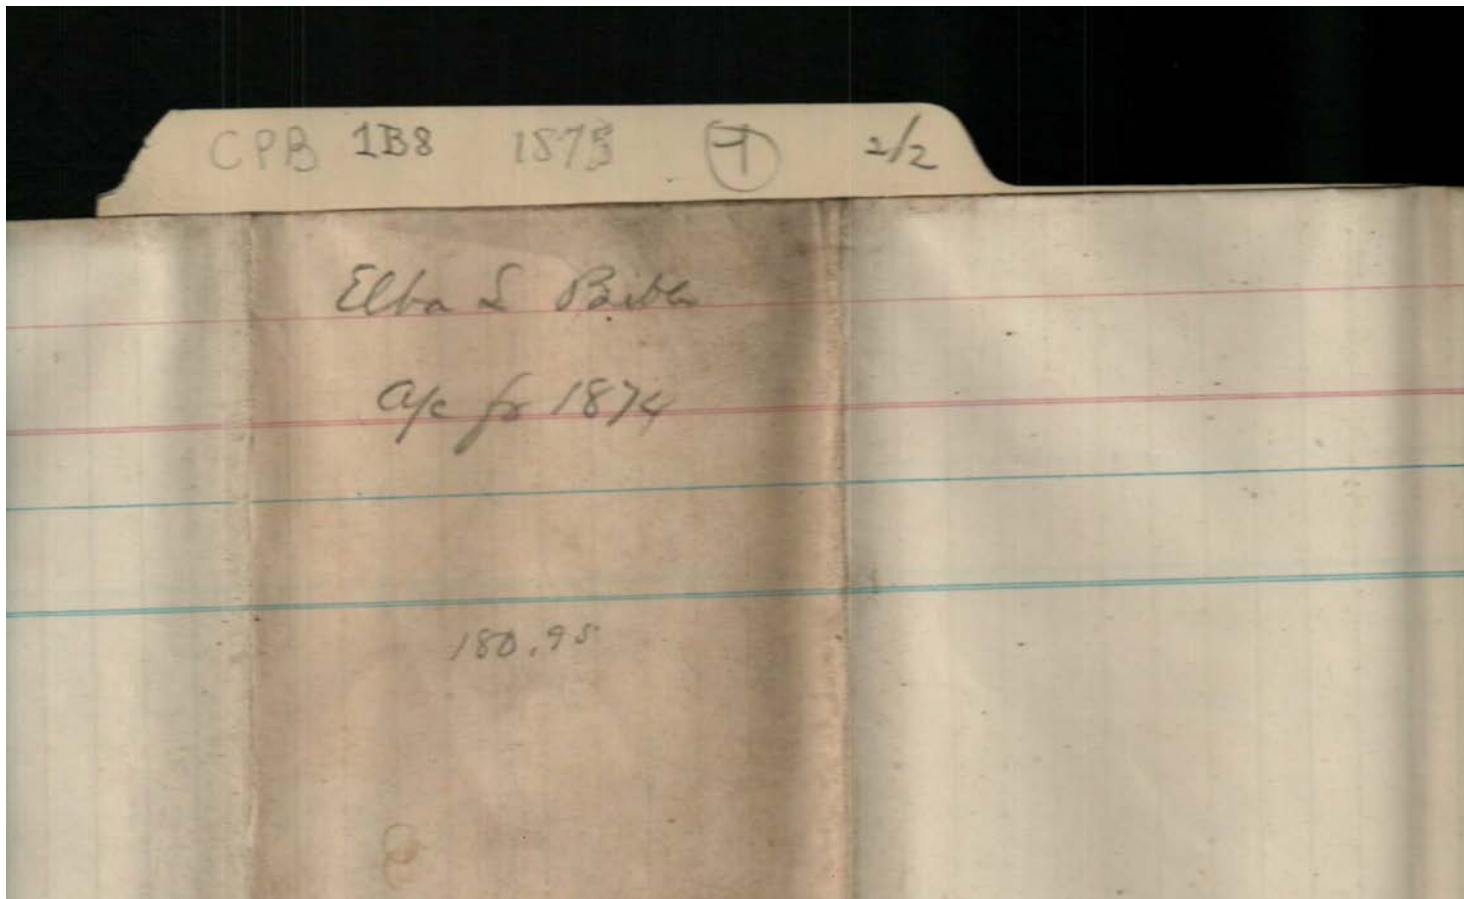 CPB 1B8 1875 T 2/2
Elba L
a/c for 1874
180.95